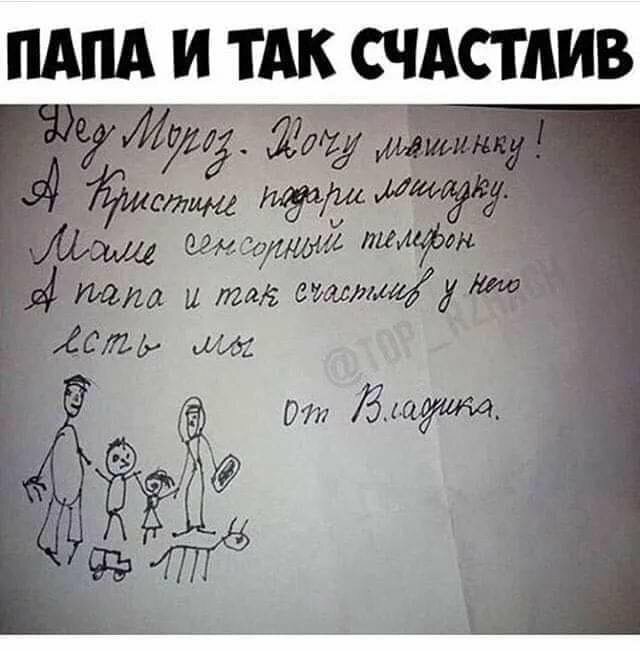 ПАПА И ТАК СЧАСТЛИВ
Дед Мороз. Хочу машинку!
А Кристине подари лошадку.
Маме сенсорный телефон
А папа и так счастлив у него
есть мы
@TOP_RZHACH
от Владика.